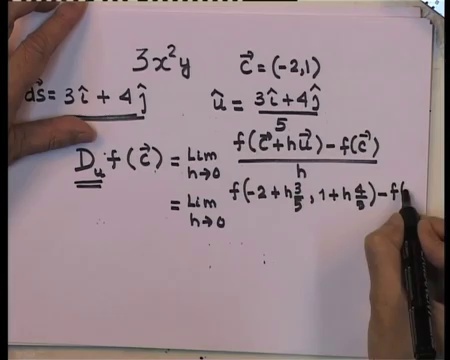 3x²y c⃗ = (-2,1)
ds⃗ = 3î + 4ĵ û = (3î+4ĵ)/5
D_u f(c⃗) = Lim h→0 (f(c⃗+hu⃗)-f(c⃗))/h
= Lim h→0 f(-2+h 3/5, 1+h 4/5)-f(